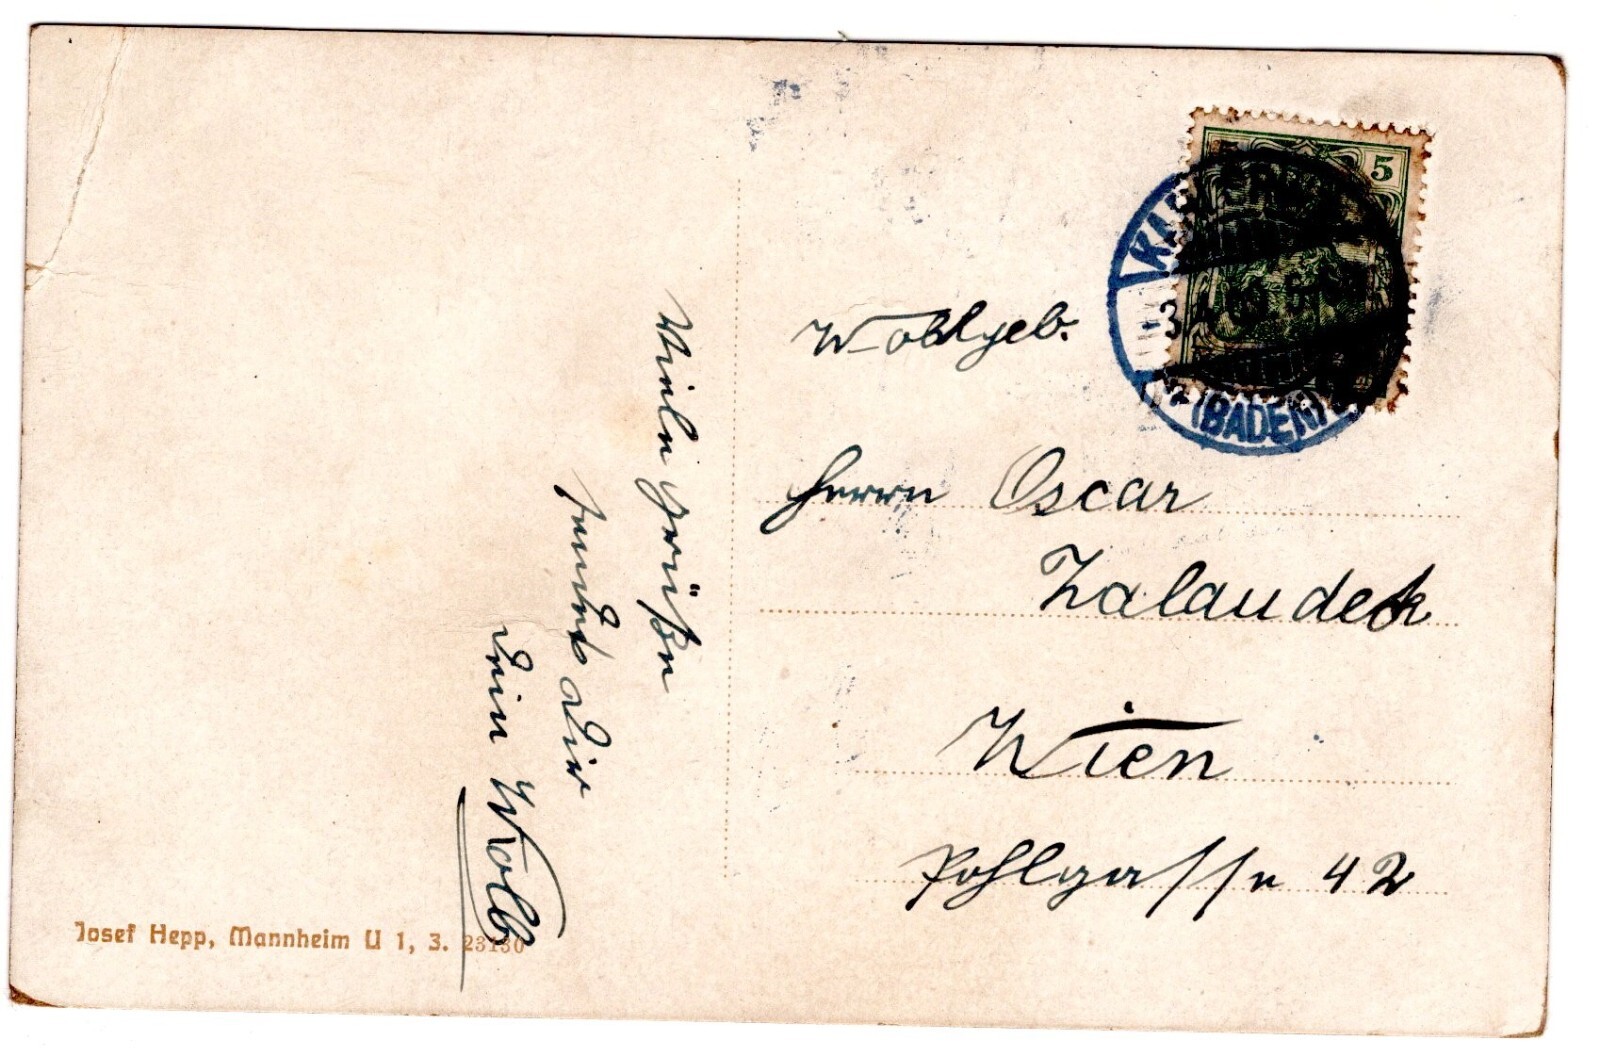 Viele Grüße
sendet Dir
Dein Kolb
Josef Hepp, Mannheim U 1, 3. 23130
5
(BADEN)
Wohlgeb.
Herrn Oscar
Zalaudek
Wien
Pohlgasse 42